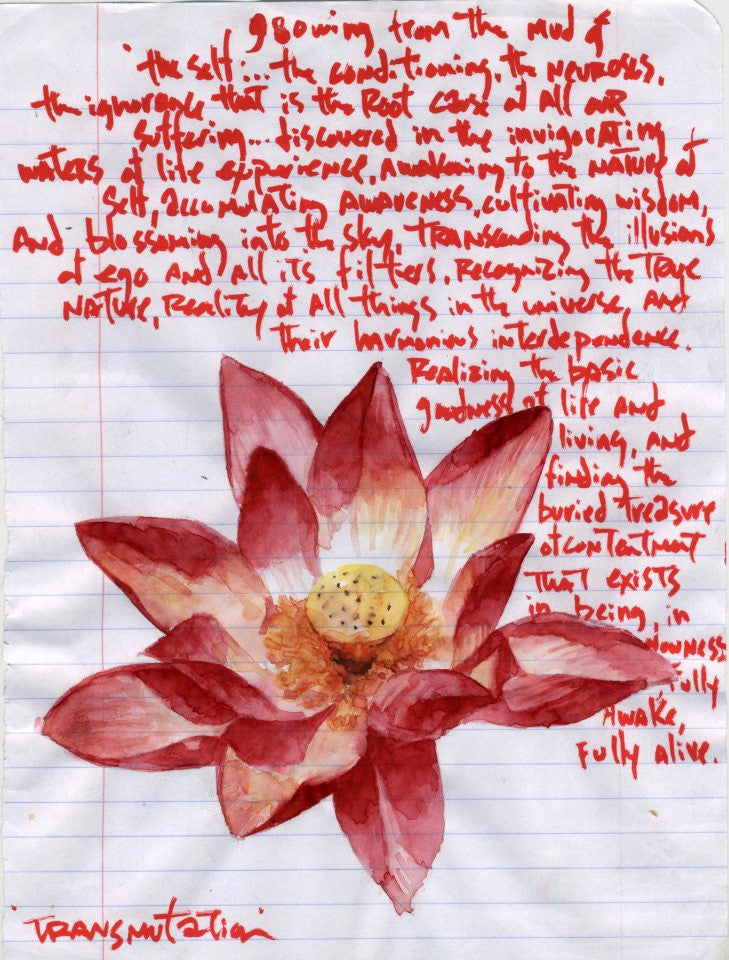 growing from the mud of
the self... the conditioning, the neuroses,
the ignorance that is the root cause of all our
suffering... discovered in the invigorating
waters of life experience, awakening to the nature of
self, accumulating awareness, cultivating wisdom,
and blossoming into the sky, transcending the illusions
of ego and all its filters. Recognizing the true
nature, reality of all things in the universe, and
their harmonious interdependence.
Realizing the basic
goodness of life and
living, and
finding the
buried treasure
of contentment
that exists
in being, in
nowness
fully
awake,
fully alive.
TRANSMUTATION